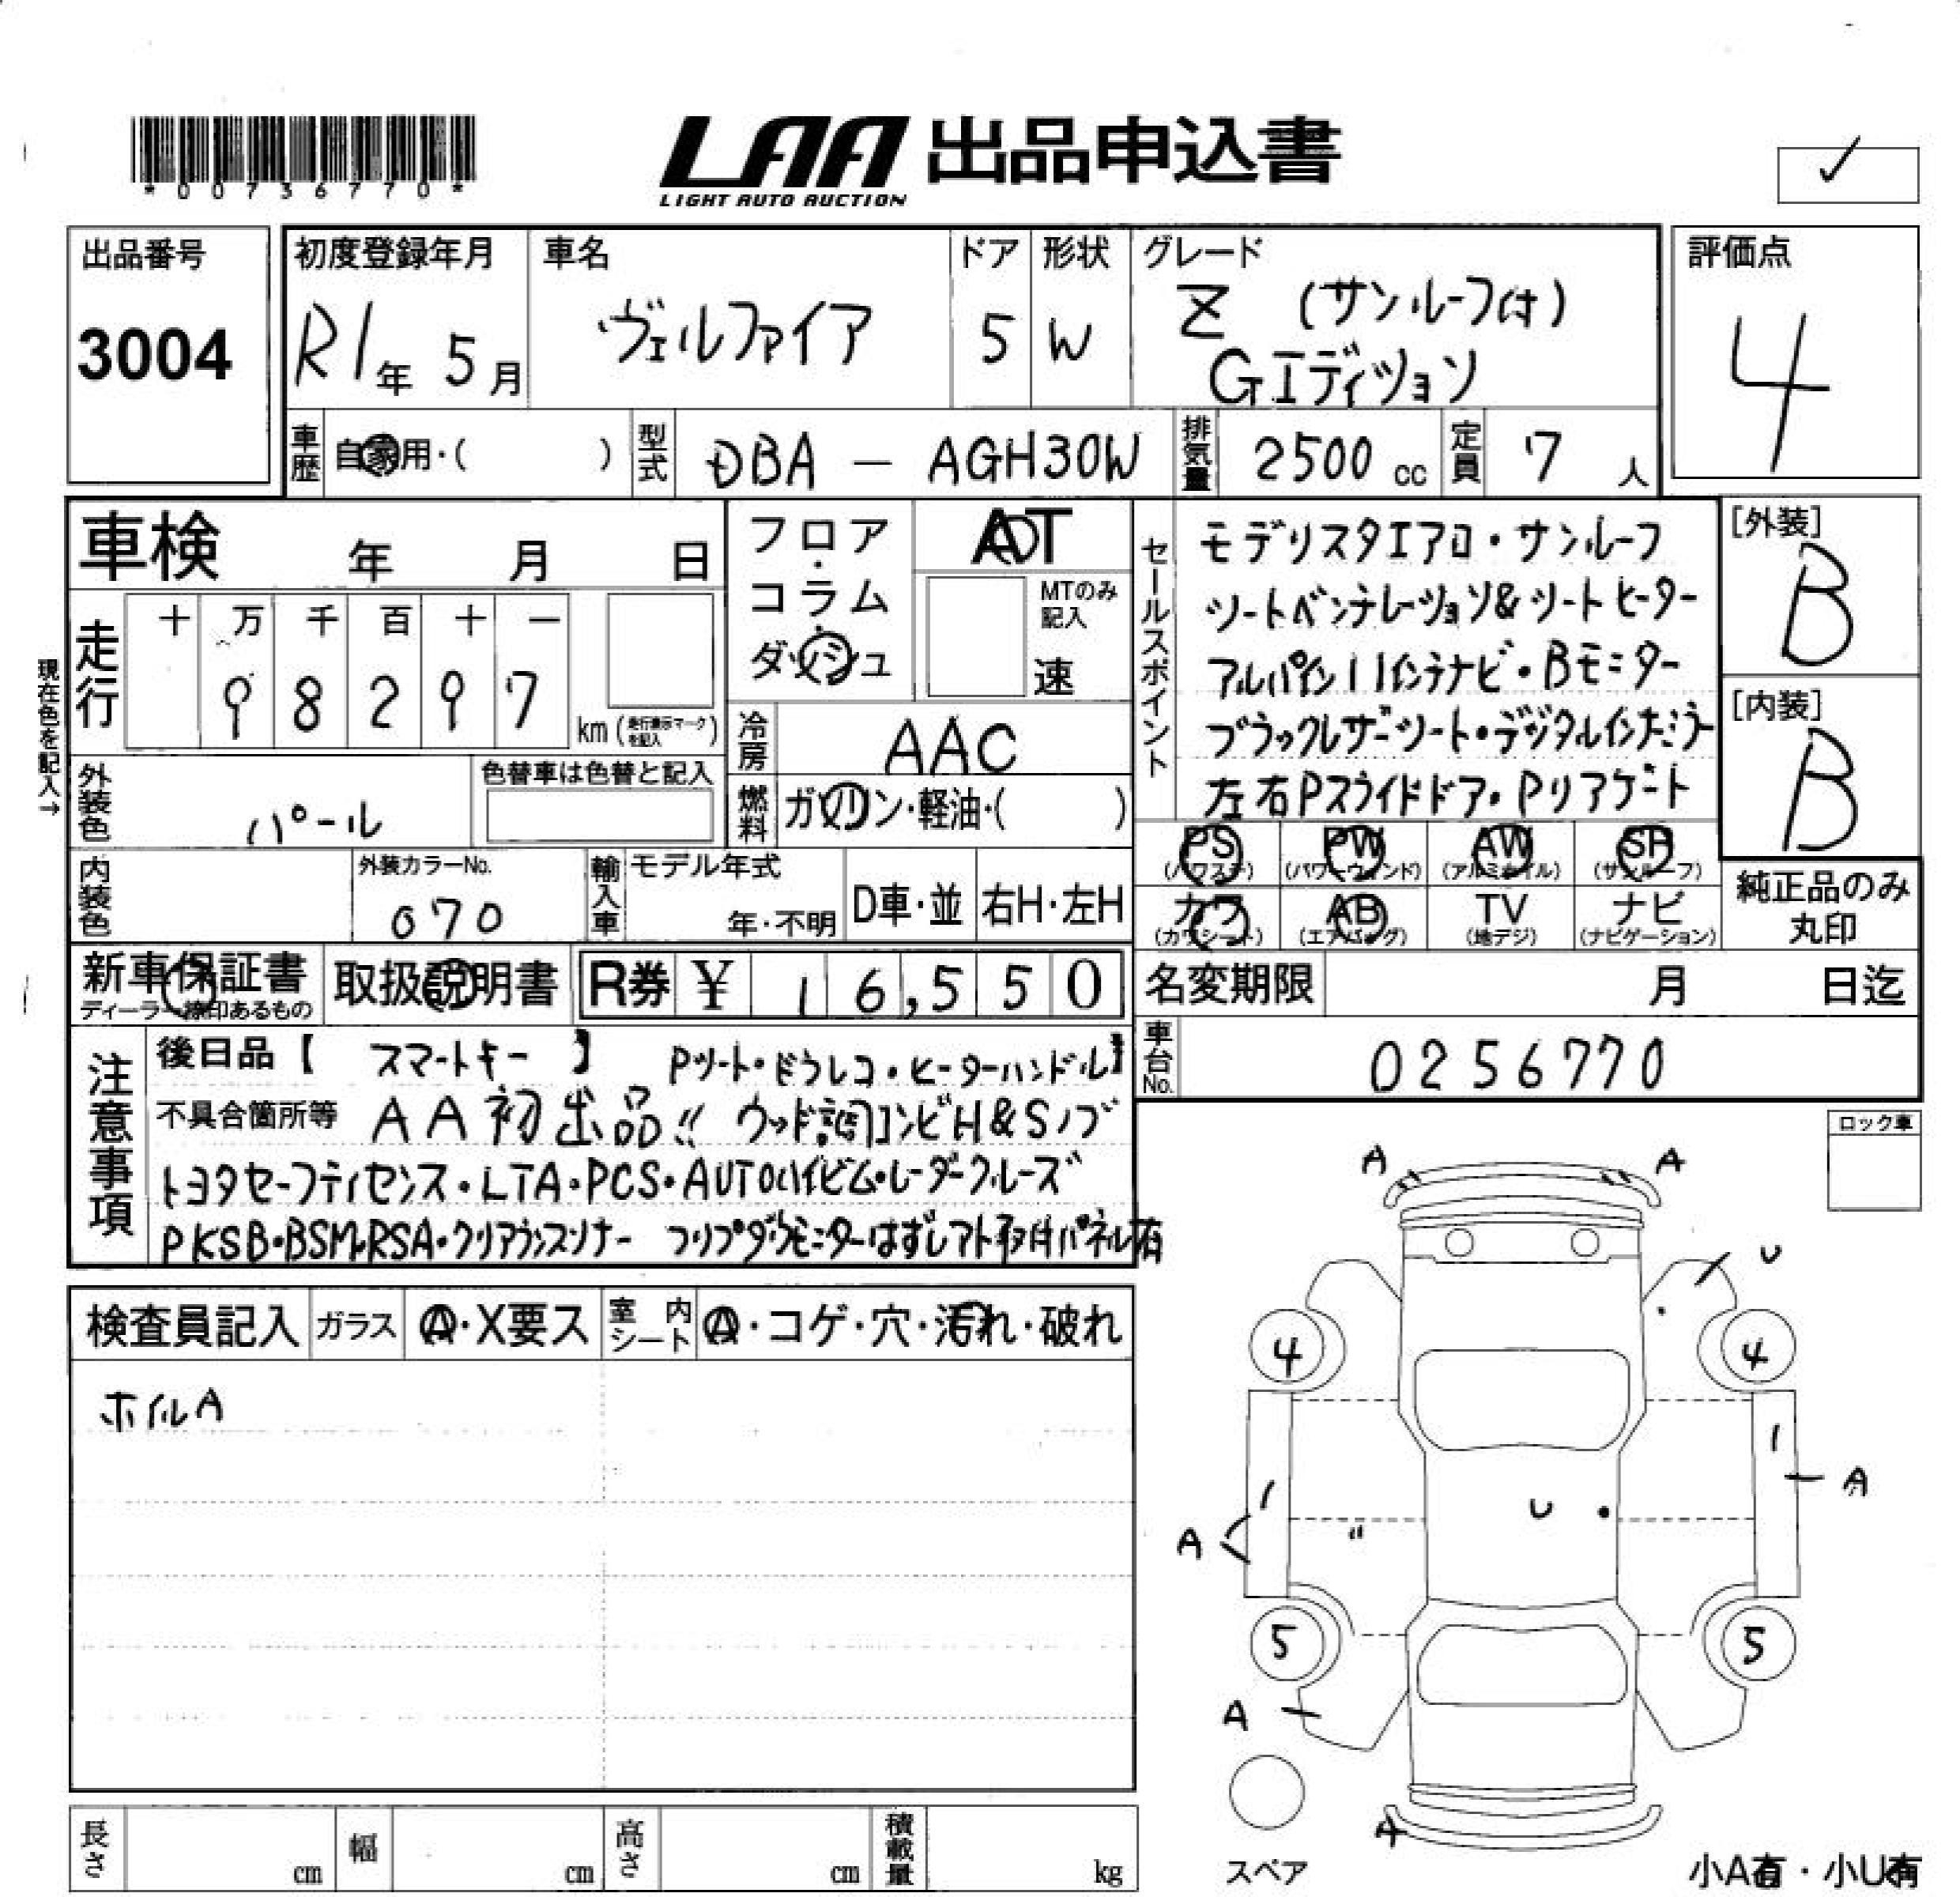 *00736770*
LAA 出品申込書
LIGHT AUTO AUCTION
出品番号
3004
初度登録年月
R1年 5月
車名
ヴェルファイア
ドア
5
形状
W
グレード
Z (サンルーフ付)
Gエディション
評価点
4
車歴
自家用・( )
型式
DBA － AGH30W
排気量
2500 cc
定員
7 人
車検 年 月 日
フロア・コラム・ダッシュ
AT
MTのみ記入
速
走行
十 万 千 百 十 一
9 8 2 9 7
km (走行表示マークを記入)
現在色を記入→
冷房
AAC
外装色
パール
色替車は色替と記入
燃料
ガソリン・軽油・( )
内装色
外装カラーNo.
070
輸入車
モデル年式
年・不明
D車・並
右H・左H
セールスポイント
モデリスタエアロ・サンルーフ
シートベンチレーション&シートヒーター
アルパイン11インチナビ・Bモニター
ブラックレザーシート・デジタルインナーミラー
左右Pスライドドア・Pリアゲート
[外装]
B
[内装]
B
PS (パワステ)
PW (パワーウィンド)
AW (アルミホイル)
SR (サンルーフ)
カワ (カワシート)
AB (エアバッグ)
TV (地デジ)
ナビ (ナビゲーション)
純正品のみ丸印
新車保証書
ディーラー捺印あるもの
取扱説明書
R券 ¥ 16,550
名変期限 月 日迄
車台No.
0256770
注意事項
後日品【 スマートキー 】 Pシート・ドラレコ・ヒーターハンドル】
不具合箇所等 AA初出品!! ウッド調コンビH&Sノブ
トヨタセーフティセンス・LTA・PCS・AUTOハイビム・レーダークルーズ
PKSB・BSM・RSA・クリアランスソナー フリップダウンモニターはずしアト取付パネル有
ロック車
検査員記入
ガラス
A・X要ス
室内シート
A・コゲ・穴・汚れ・破れ
ホイルA
A A
U
4 4
1
A
U
1
A
5 5
A
A
スペア
小A有・小U有
長さ cm
幅 cm
高さ cm
積載量 kg